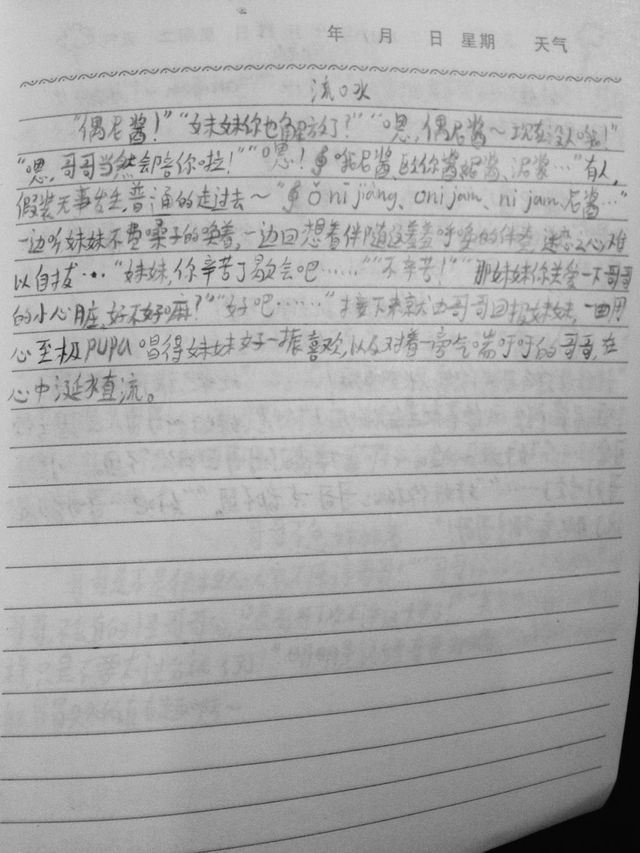 年 月 日 星期 天气
流口水
"偶尼酱!""妹妹你也解放了?""嗯,偶尼酱~现在没人哦!"
"嗯,哥哥当然会陪你啦!""嗯!哦尼酱欧你酱昵酱、泥浆…"有人,
假装无事发生,普通的走过去~"ǒ ni jiàng、oni jam、ni jam、尼酱…"
一边听妹妹不费嗓子的唤着,一边回想着伴随这羞羞呼唤的体态,迷恋之心难
以自拔…"妹妹,你辛苦了歇会吧……""不辛苦!""那妹妹你关爱一下哥哥
的小心脏,好不好嘛?""好吧……"接下来就由哥哥回报妹妹,一曲用
心至极PUPA唱得妹妹好一振喜欢,以及对着一旁气喘吁吁的哥哥,在
心中涎水直流。